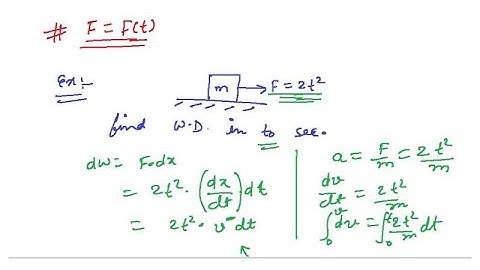 # F = F(t)
Ex:-
m F = 2t²
find W.D. in t₀ sec.
dw = F·dx
= 2t²·(dx/dt)dt
= 2t²·v dt
a = F/m = 2t²/m
dv/dt = 2t²/m
∫₀ᵛ dv = ∫₀ᵗ 2t²/m dt